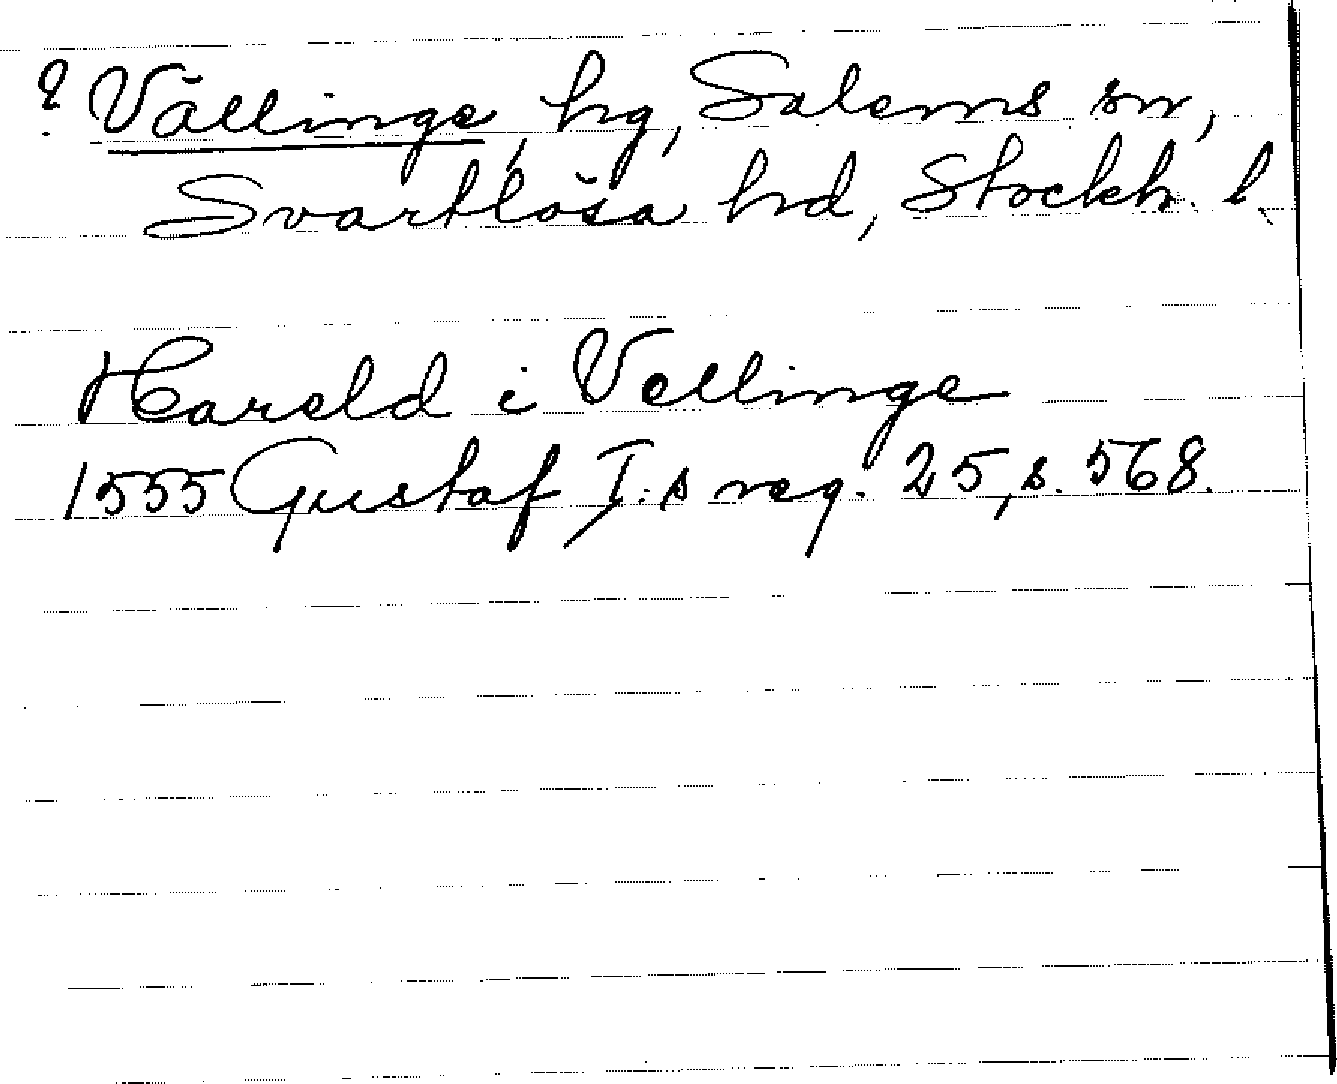 ? Vällinge, hg, Salems sn,
Svartlösa hrd, Stockh. l.
Harald i Vellinge
1555 Gustaf I:s reg. 25, s. 568.